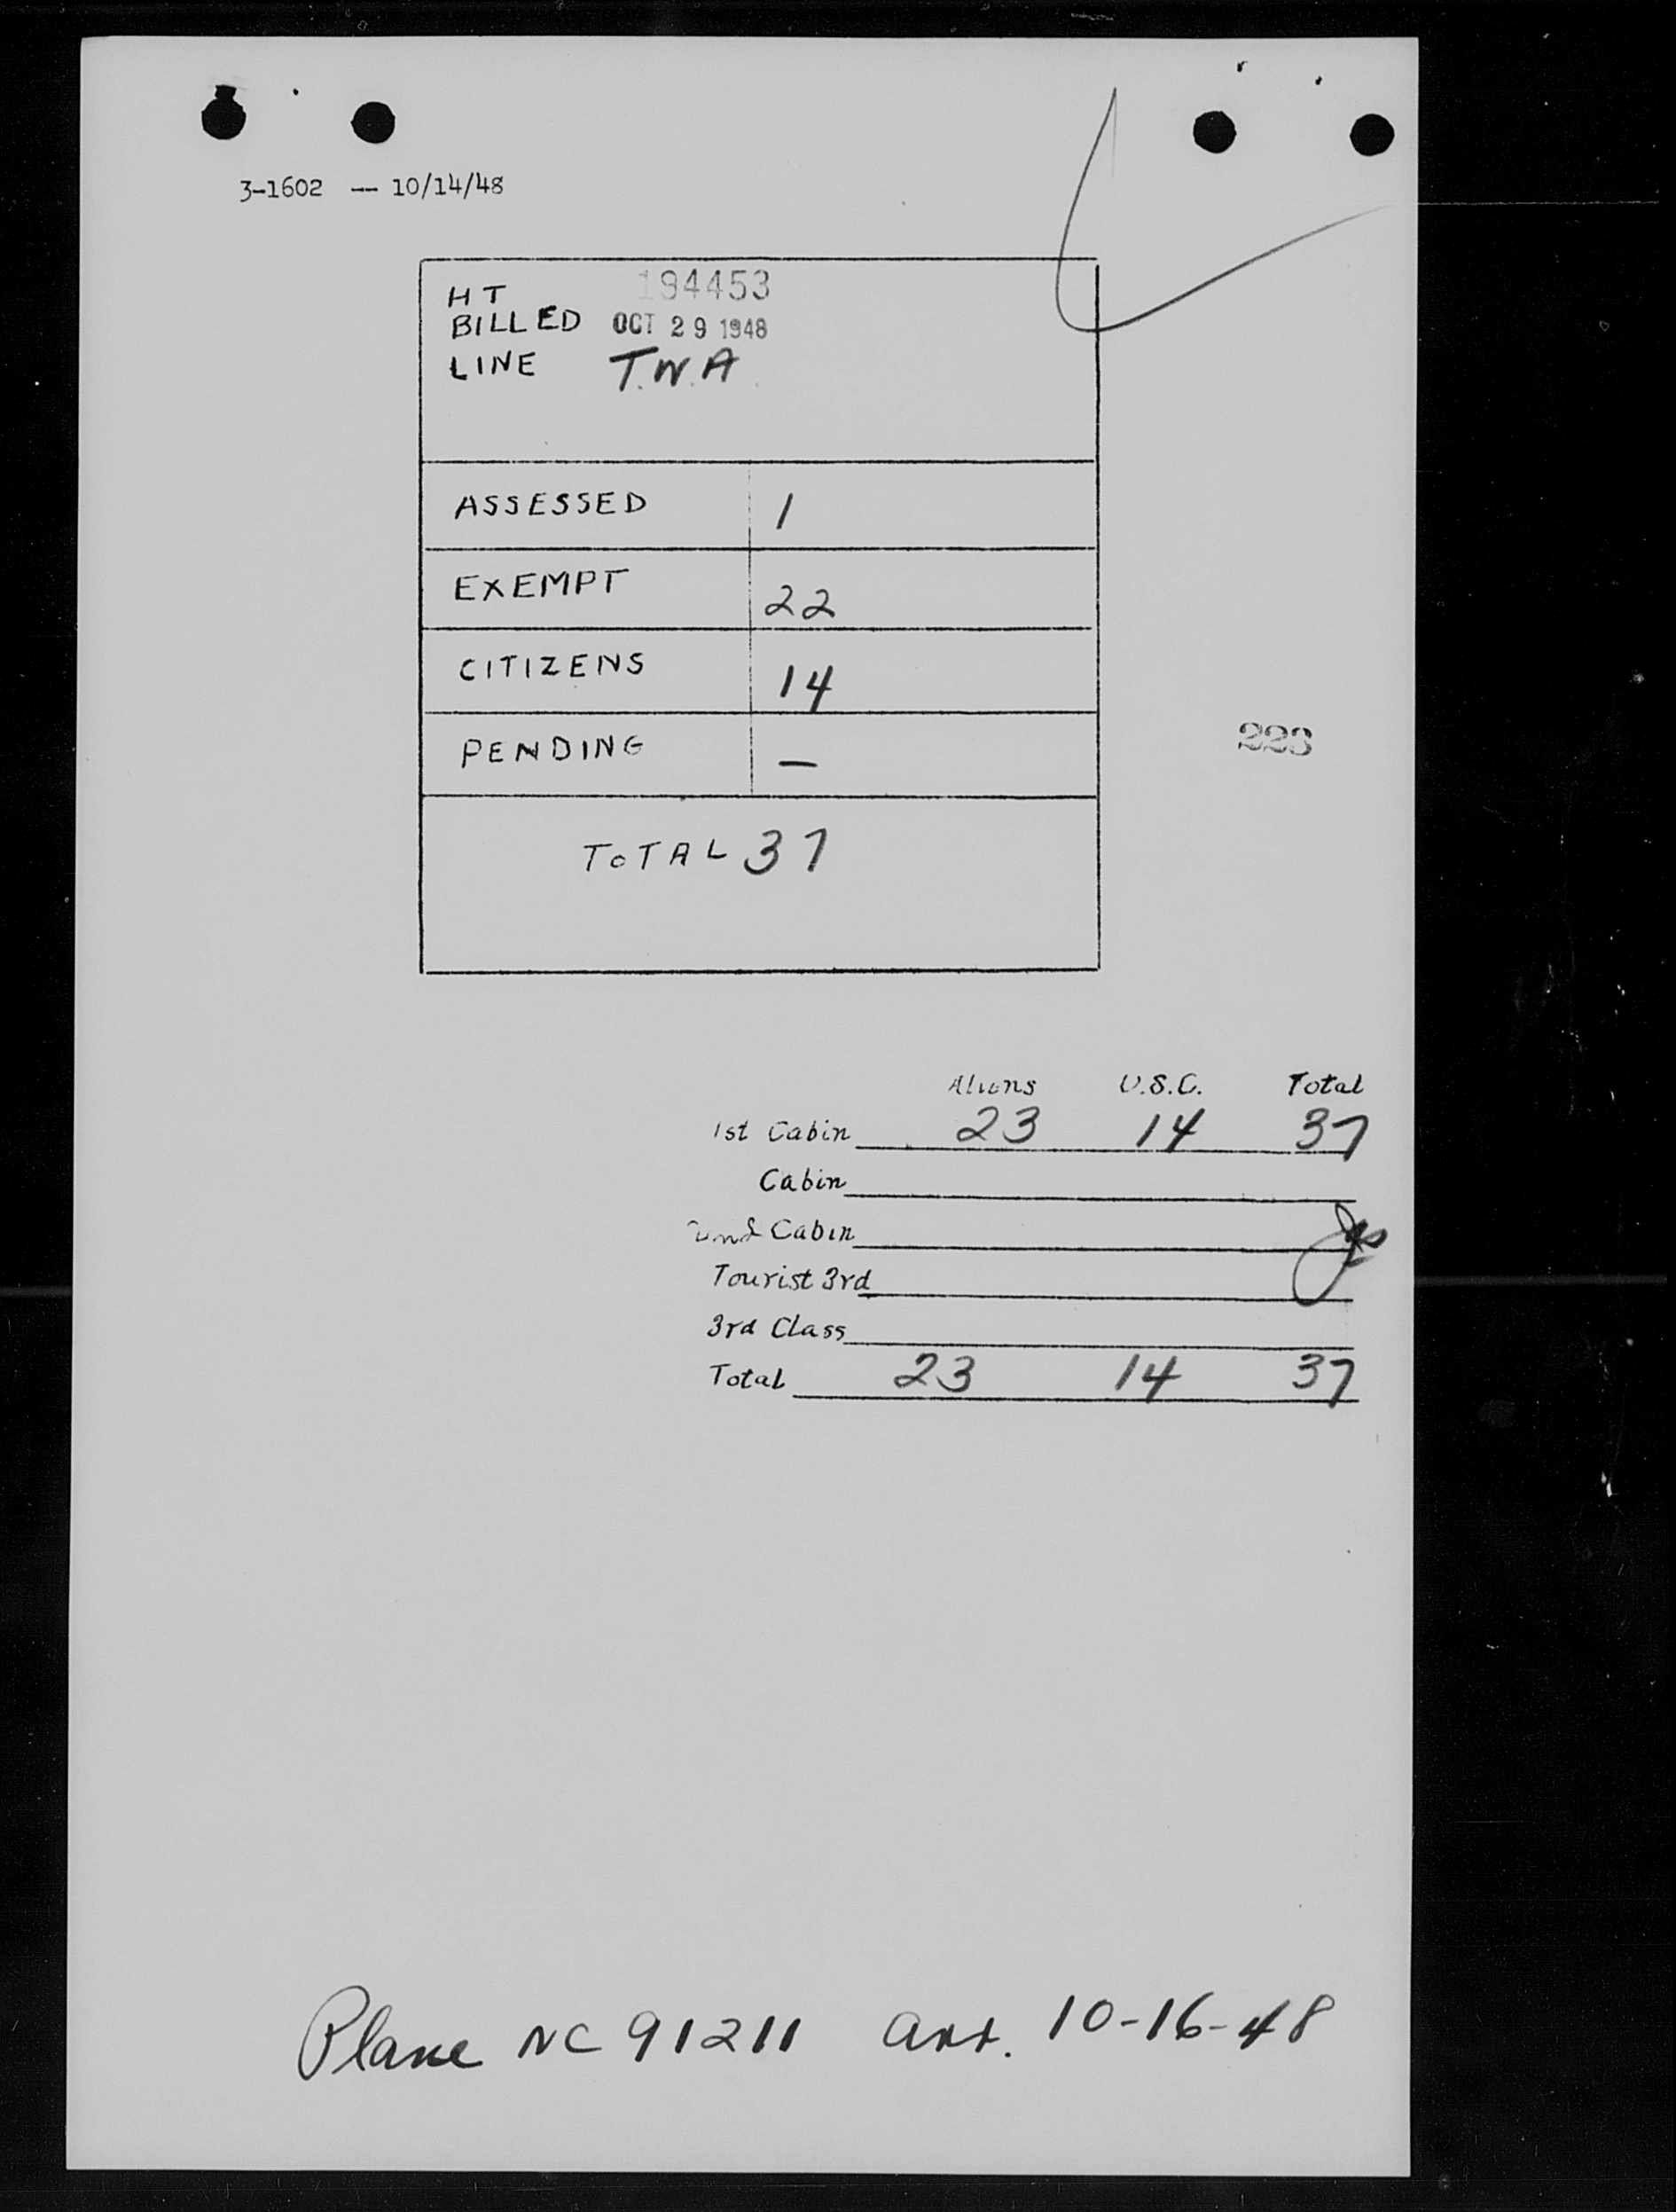 3-1602 -- 10/14/48
HT 194453
BILLED OCT 29 1948
LINE T.W.A.
ASSESSED 1
EXEMPT 22
CITIZENS 14
PENDING —
223
TOTAL 37
Aliens U.S.C. Total
1st Cabin 23 14 37
Cabin
2nd Cabin
Tourist 3rd
3rd Class
Total 23 14 37
Plane NC 91211 arr. 10-16-48